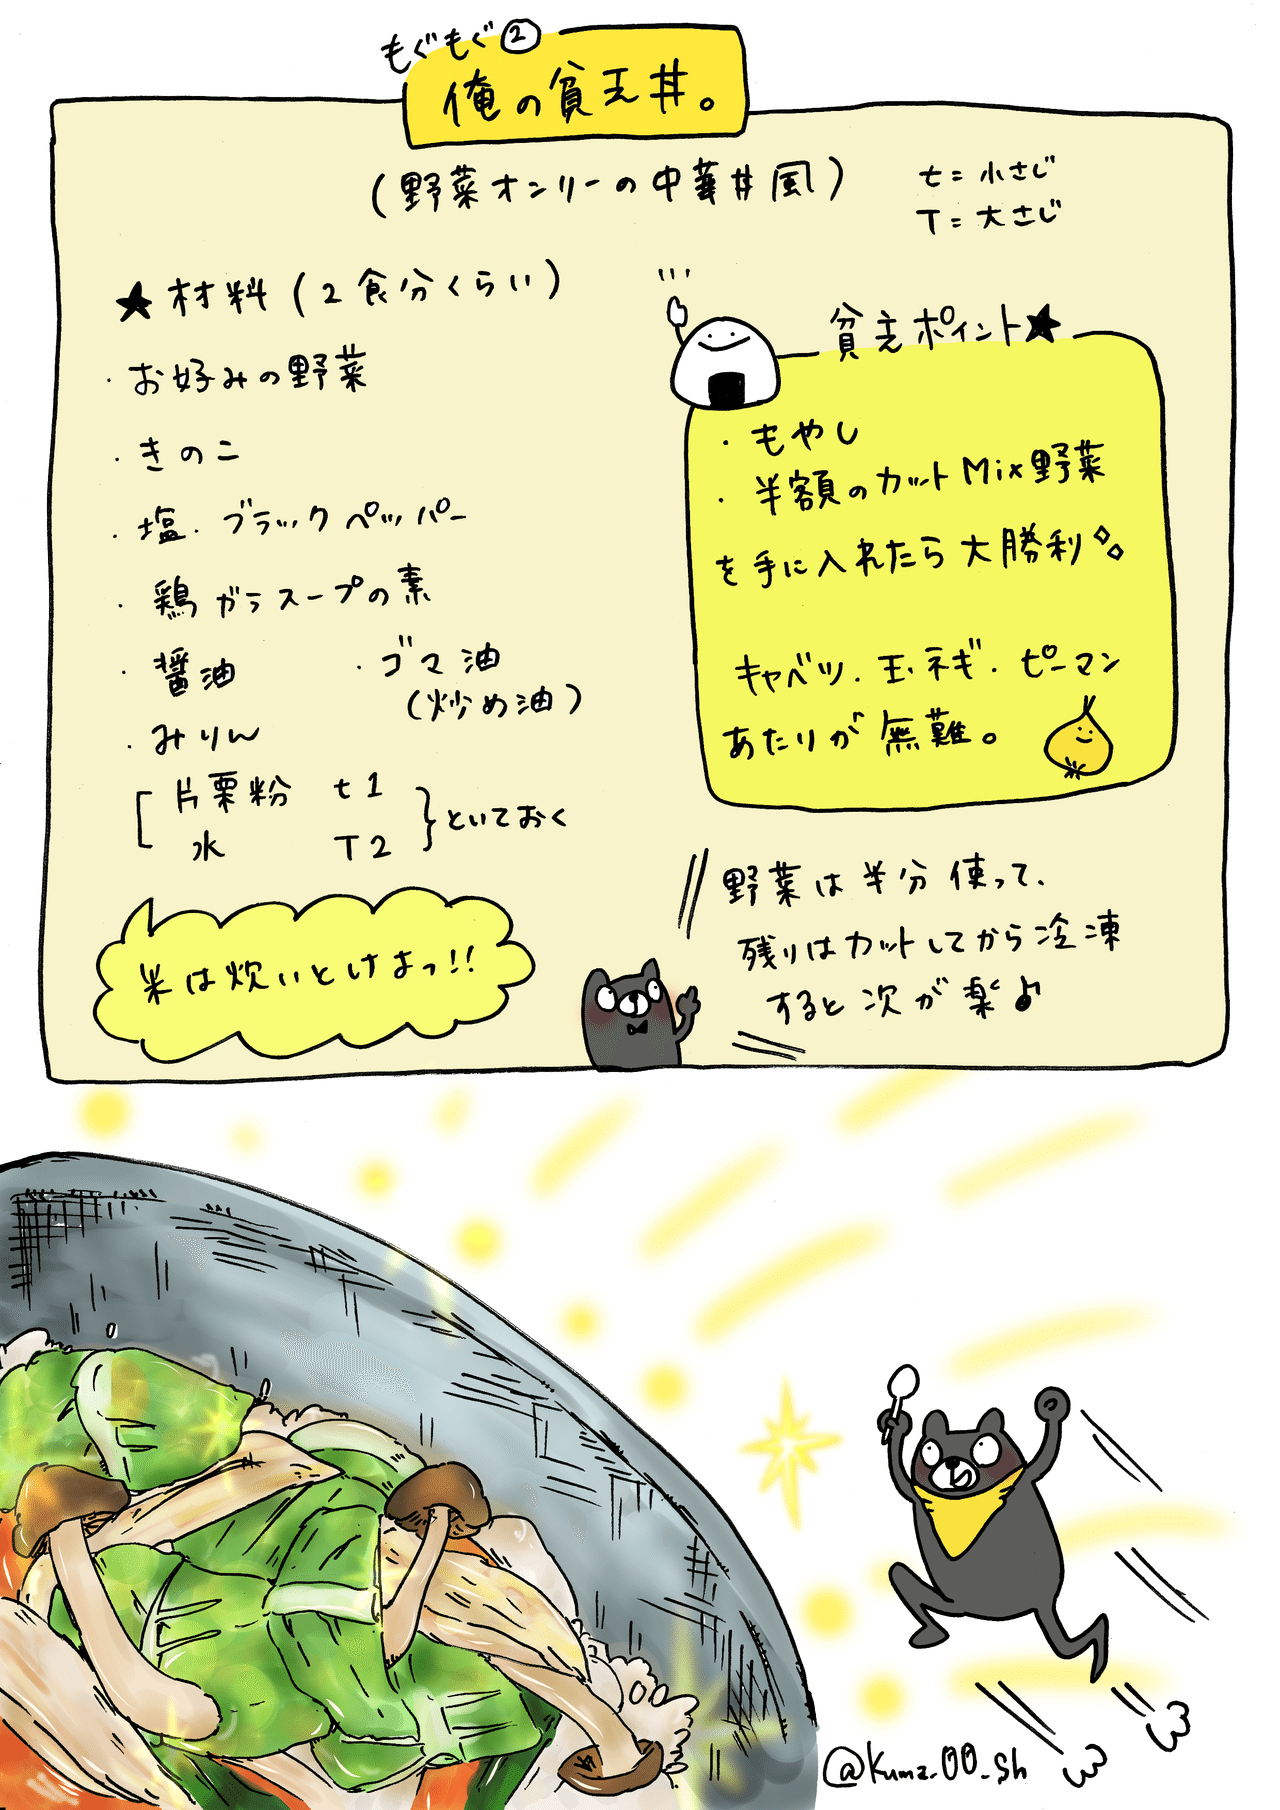 もぐもぐ②
俺の貧乏丼。
(野菜オンリーの中華丼風)
t=小さじ
T=大さじ
★材料(2食分くらい)
・お好みの野菜
・きのこ
・塩・ブラックペッパー
・鶏ガラスープの素
・醤油
・ゴマ油
(炒め油)
・みりん
片栗粉 t1
水 T2
といておく
米は炊いとけよっ!!
貧乏ポイント★
・もやし
・半額のカットMix野菜
を手に入れたら大勝利
キャベツ・玉ネギ・ピーマン
あたりが無難。
野菜は半分使って、
残りはカットしてから冷凍
すると次が楽♪
@kuma_00_sh